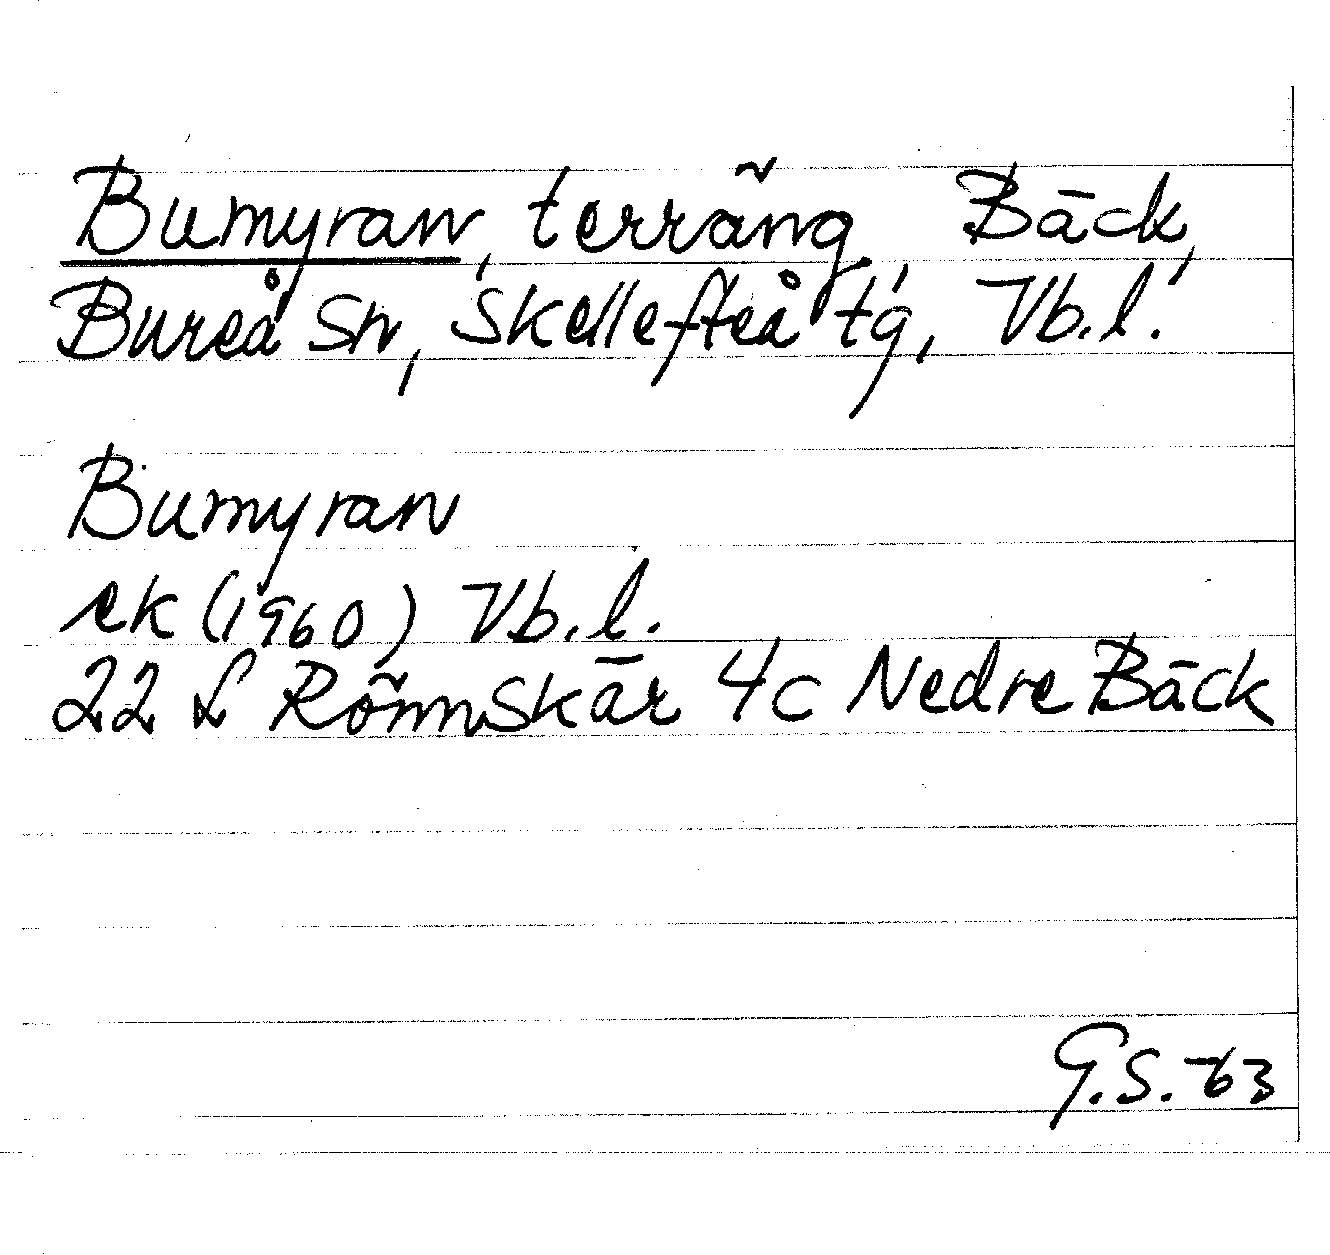 Bumyran, terräng, Bäck,
Bureå sn, Skellefteå tg, Vb.l.
Bumyran
ek (1960) Vb.l.
22 L Rönnskär 4c Nedre Bäck
G.S. -63